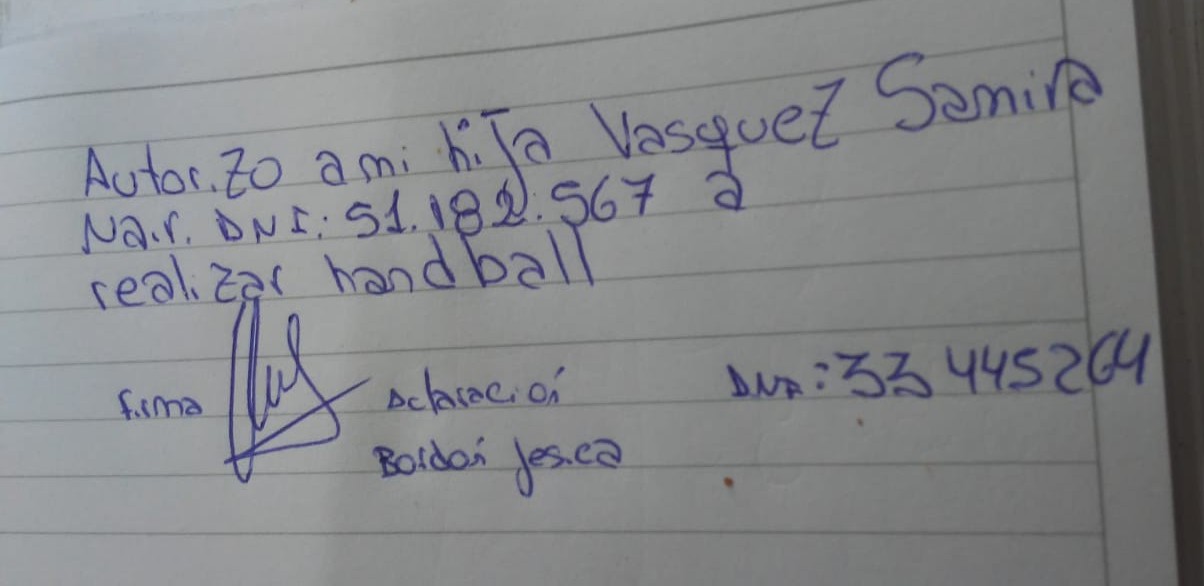 Autorizo a mi hija Vasquez Samira
Nair. DNI: 51.182.567 a
realizar handball
firma
Aclaración
DNI: 33 445264
Bordon Jesica